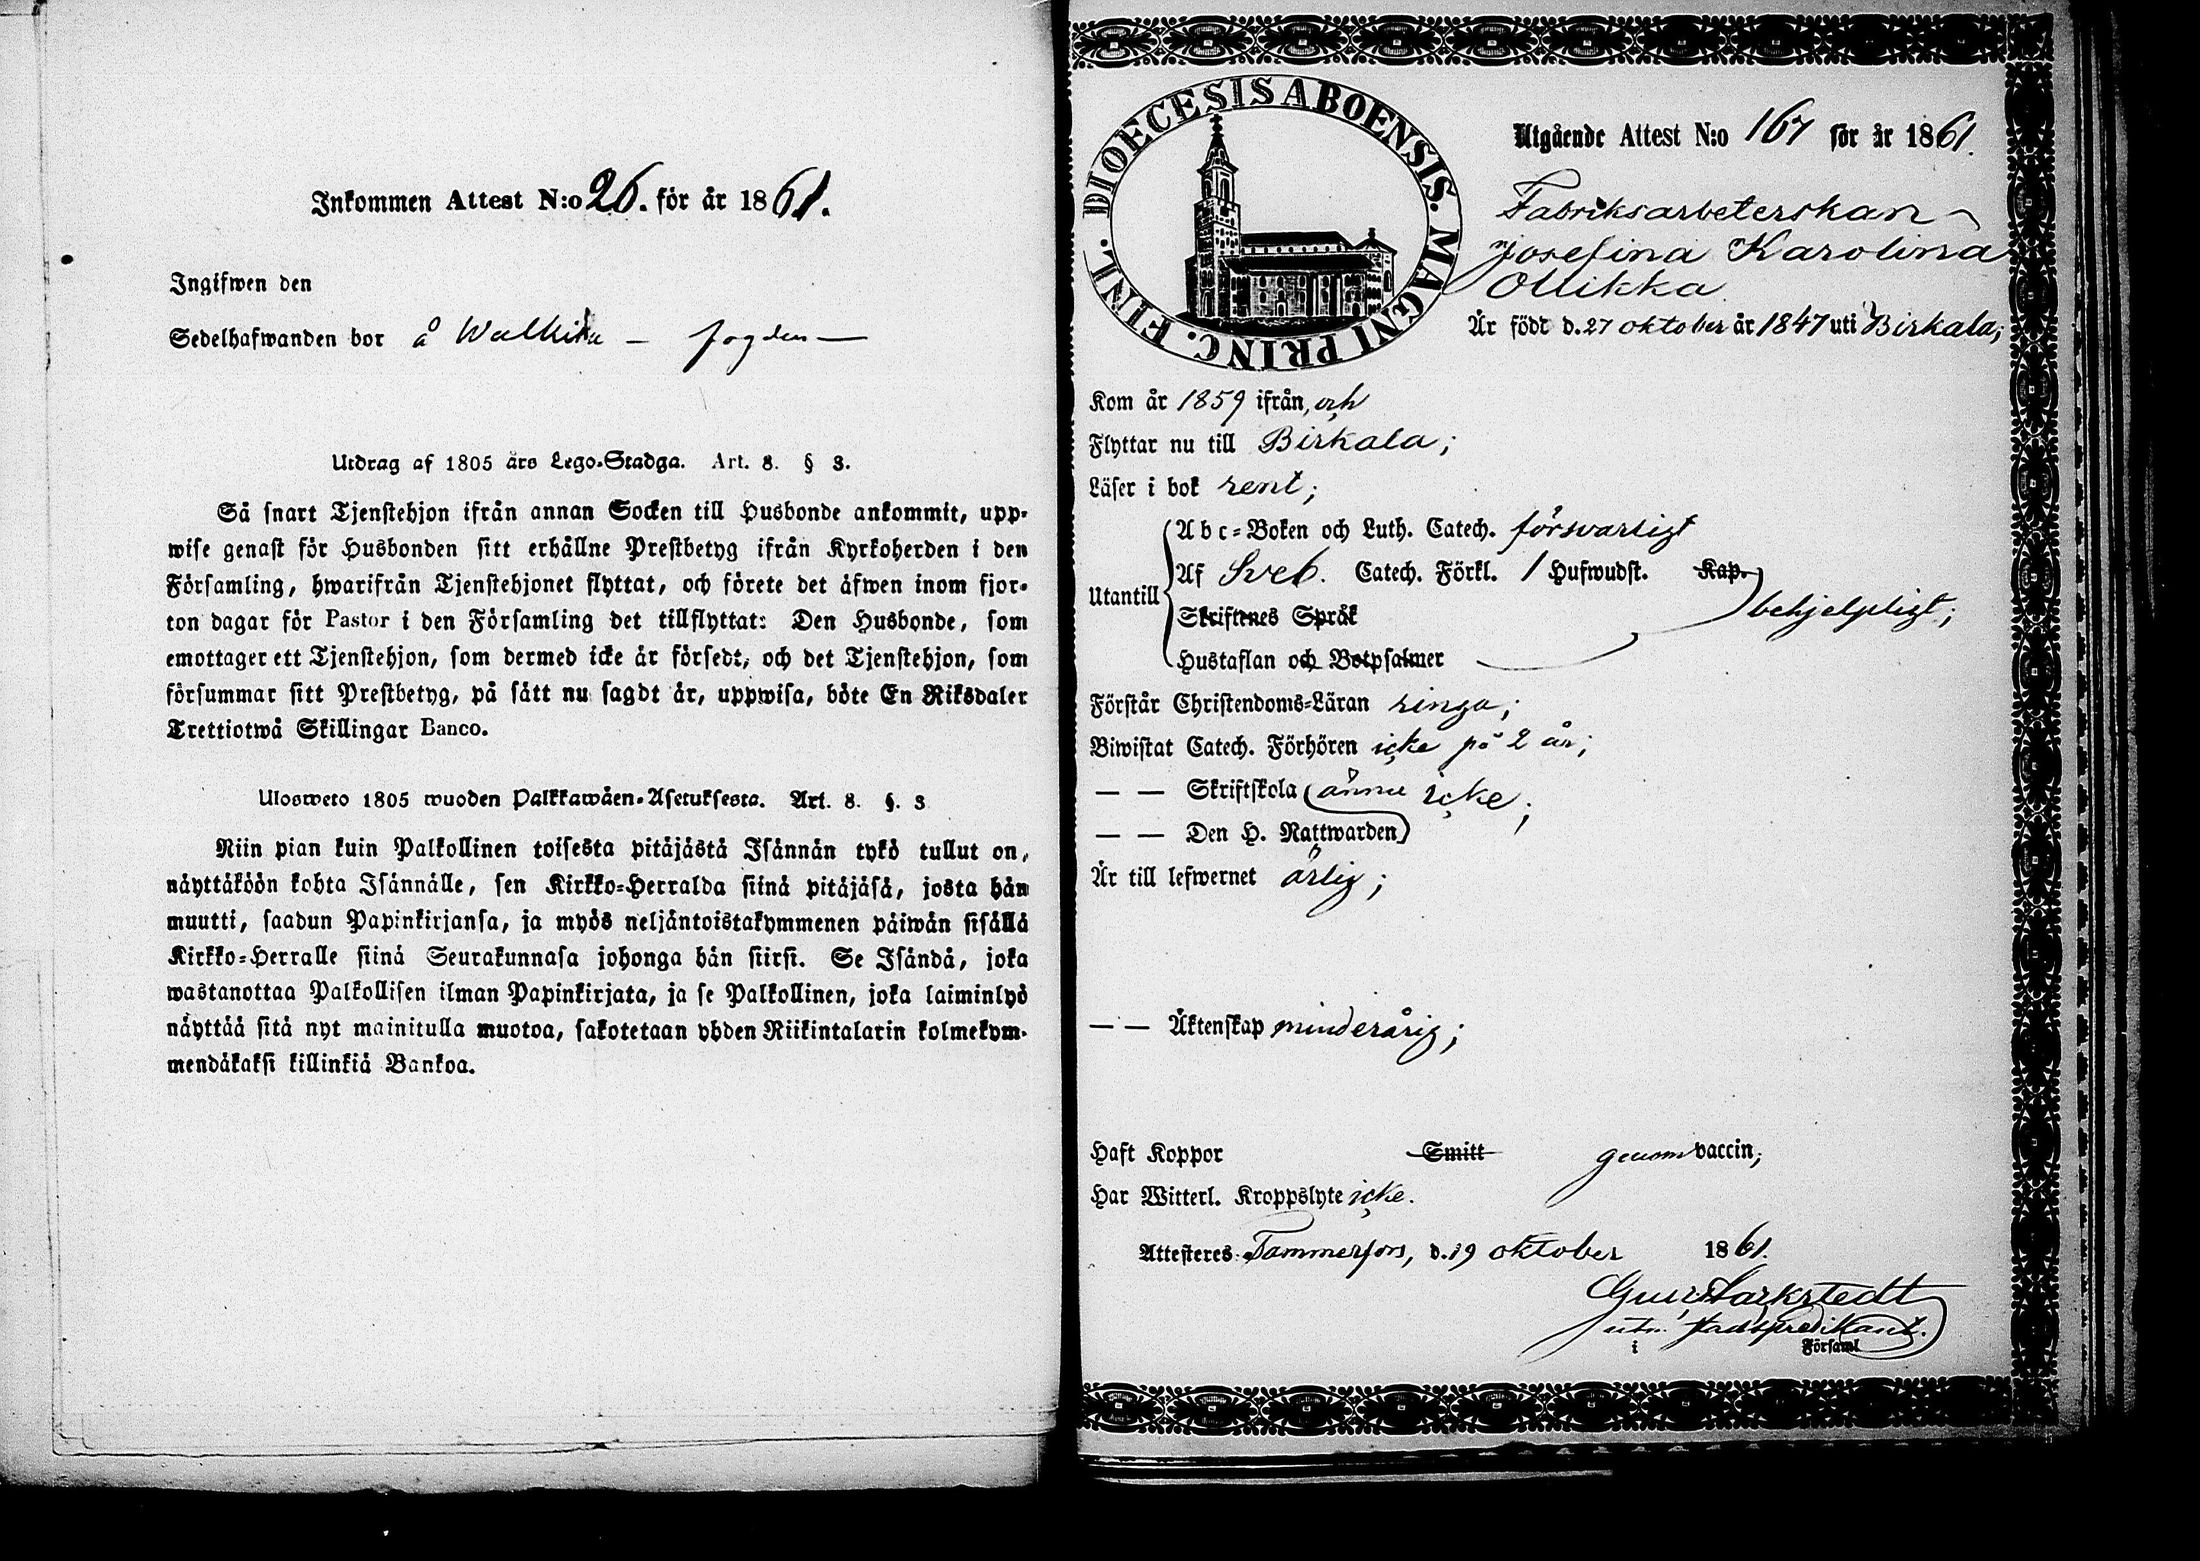 Inkommen Attest N:o 26. för år 1861.
Ingifwen den
Sedelhafwanden bor å
Utdrag af 1805 års Lego-Stadga. Art. 8. § 3.
Så snart Tjenstehjon ifrån annan Socken till Husbonde ankommit, upp-
wise genast för Husbonden sitt erhållne Prestbetyg ifrån Kyrkoherden i den
Församling, hwarifrån Tjenstehjonet flyttat, och förete det äfwen inom fjor-
ton dagar för Pastor i den Församling det tillflyttat: Den Husbonde, som
emottager ett Tjenstehjon, som dermed icke är försedt, och det Tjenstehjon, som
försummar sitt Prestbetyg, på sätt nu sagdt är, uppwisa, böte En Riksdaler
Trettiotwå Skillingar Banco.
Ulosweto 1805 wuoden Palkkawäen-Asetuksesta. Art. 8. §. 3
Niin pian kuin Palkollinen toisesta pitäjästä Isännän tykö tullut on,
näyttäköön kohta Isännälle, sen Kirkko-Herralda siinä pitäjäsä, josta hän
muutti, saadun Papinkirjansa, ja myös neljäntoistakymmenen päiwän sisällä
Kirkko-Herralle siinä Seurakunnasa johonga hän siirsi. Se Isändä, joka
wastanottaa Palkollisen ilman Papinkirjata, ja se Palkollinen, joka laiminlyö
näyttää sitä nyt mainitulla muotoa, sakotetaan yhden Riikintalarin kolmekym-
mendäkaksi killinkiä Bankoa.
DIOECESIS ABOENSIS. MAGNI PRINC. FINL.
Utgående Attest N:o 167 för år 1861.
Fabriksarbeterskan
Josefina Karolina
Ollikka
Är född d. 27 oktober år 1847 uti Birkala;
Kom år 1859 ifrån, och
Flyttar nu till Birkala;
Läser i bok rent;
Utantill
Abc-Boken och Luth. Catech. försvarligt
Af Sveb. Catech. Förkl. 1 Hufwudst. Kap.
Skriftenes Språk
behjelpligt;
Hustaflan och Botpsalmer
Förstår Christendoms-Läran ringa;
Biwistat Catech. Förhören icke på 2 år;
— — Skriftskola ännu icke;
— — Den H. Nattwarden
Är till lefwernet ärlig;
— — Äktenskap minderårig;
Haft Koppor Smitt genom vaccin;
Har Witterl. Kroppslyte icke.
Attesteres Tammerfors, d. 19 oktober 1861.
stadspredikant.
i Församl